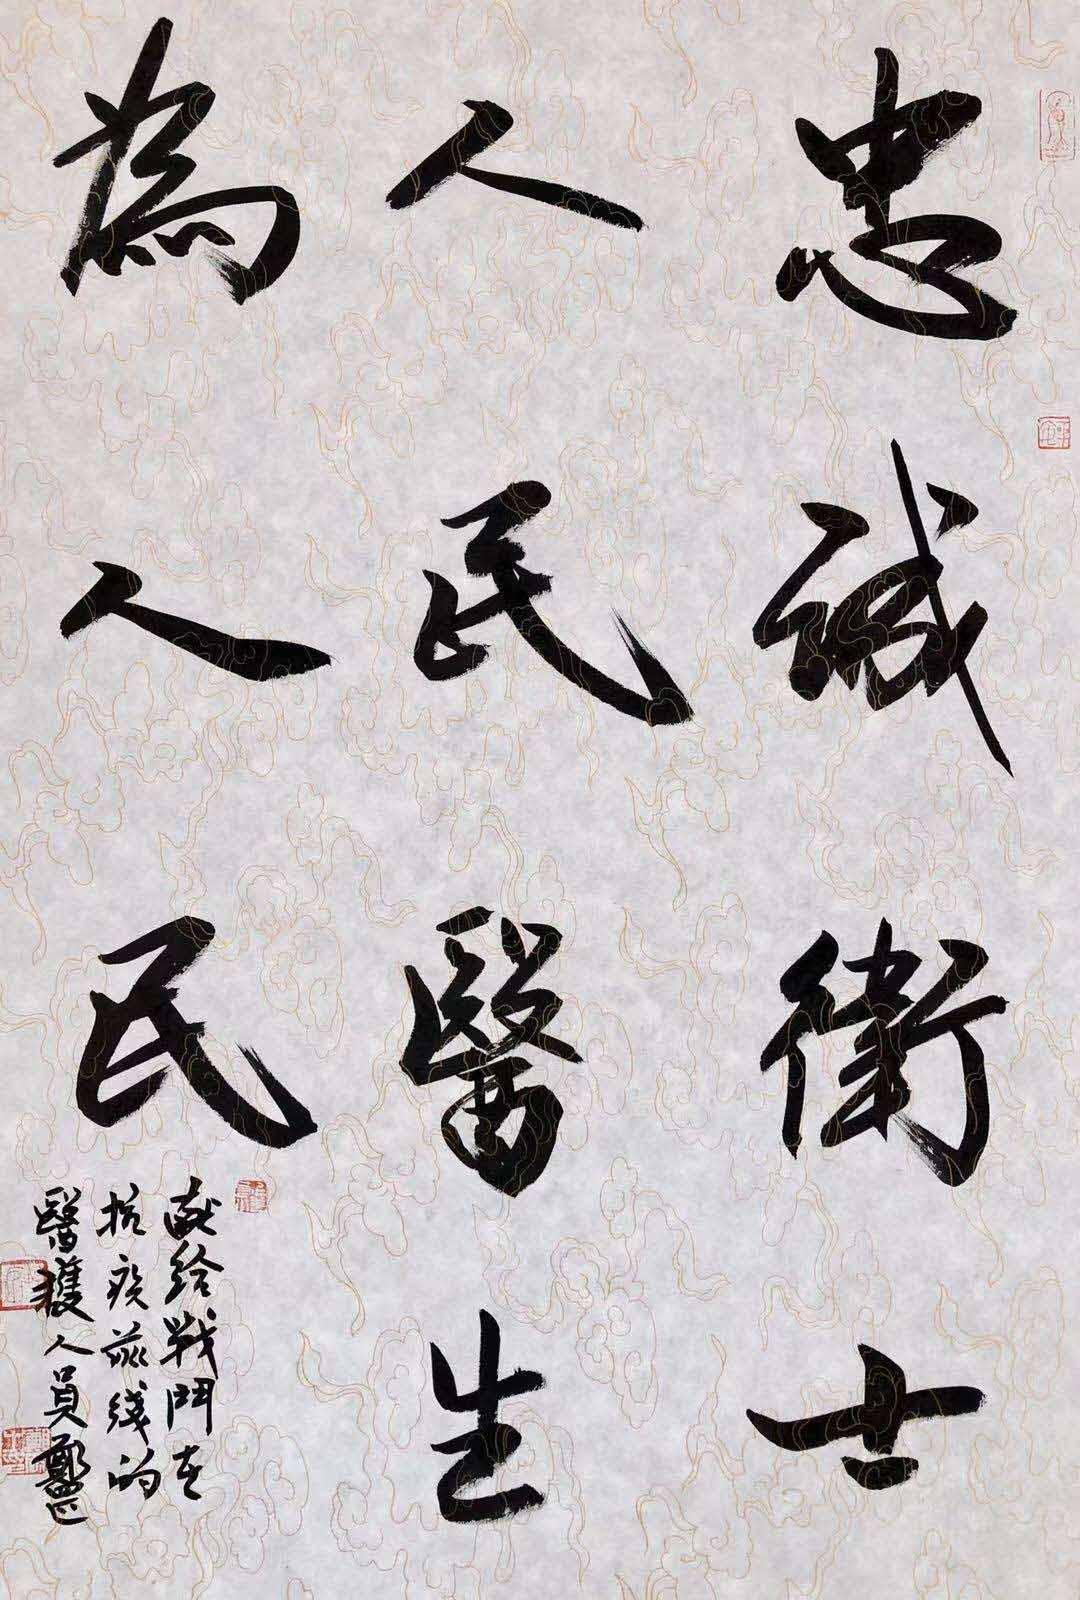 忠誠衛士
人民醫生
為人民
献给戰鬥在
抗疫前线的
醫護人員鄭